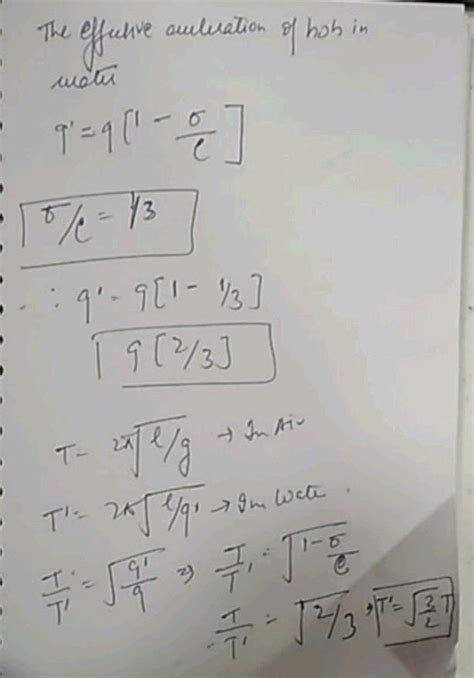 The effective acceleration of bob in
water
g' = g [1 - σ/ρ]
σ/ρ = 1/3
∴ g' = g [1 - 1/3]
g [2/3]
T = 2π√l/g → In Air
T' = 2π√l/g' → In Water.
T/T' = √g'/g ⇒ T/T' = √1-σ/ρ
∴ T/T' = √2/3 ⇒ T' = √3/2 T